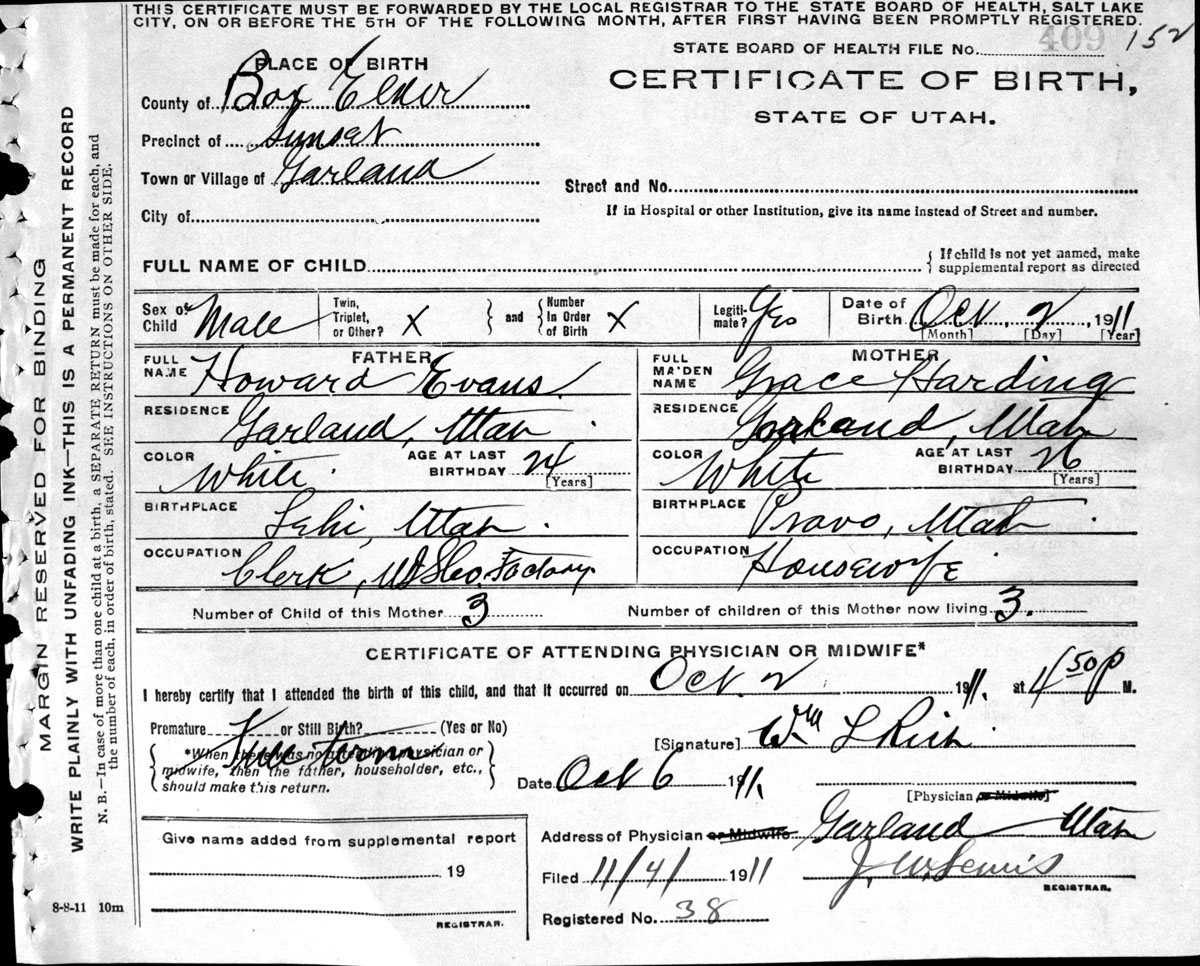 THIS CERTIFICATE MUST BE FORWARDED BY THE LOCAL REGISTRAR TO THE STATE BOARD OF HEALTH, SALT LAKE
CITY, ON OR BEFORE THE 5TH OF THE FOLLOWING MONTH, AFTER FIRST HAVING BEEN PROMPTLY REGISTERED.
STATE BOARD OF HEALTH FILE No. 409 152
PLACE OF BIRTH
CERTIFICATE OF BIRTH,
STATE OF UTAH.
County of Box Elder
Precinct of Sunset
Town or Village of Garland
Street and No.
City of
If in Hospital or other Institution, give its name instead of Street and number.
FULL NAME OF CHILD
{ If child is not yet named, make
supplemental report as directed
Sex of Child Male
Twin, Triplet, or Other? X } and { Number In Order of Birth X
Legitimate? Yes
Date of Birth Oct, 2, 1911
[Month] [Day] [Year]
FATHER
FULL NAME Howard Evans.
MOTHER
FULL MAIDEN NAME Grace Harding
RESIDENCE Garland, Utah
RESIDENCE Garland, Utah
COLOR White AGE AT LAST BIRTHDAY 24 [Years]
COLOR White AGE AT LAST BIRTHDAY 26 [Years]
BIRTHPLACE Lehi, Utah
BIRTHPLACE Provo, Utah
OCCUPATION Clerk, Factory
OCCUPATION Housewife
Number of Child of this Mother 3
Number of children of this Mother now living 3.
CERTIFICATE OF ATTENDING PHYSICIAN OR MIDWIFE*
I hereby certify that I attended the birth of this child, and that it occurred on Oct. 2 1911. at 4 50 P M.
Premature or Still Birth? (Yes or No)
Full term
{ *When there was no attending physician or
midwife, then the father, householder, etc.,
should make this return. }
[Signature] Wm L Rich
Date Oct 6 1911.
[Physician or Midwife]
Address of Physician or Midwife Garland Utah
Filed 11/4/ 1911 J. W. Lewis
REGISTRAR.
Registered No. 38
Give name added from supplemental report
19
REGISTRAR.
8-8-11 10m
MARGIN RESERVED FOR BINDING
WRITE PLAINLY WITH UNFADING INK—THIS IS A PERMANENT RECORD
N. B.—In case of more than one child at a birth, a SEPARATE RETURN must be made for each, and
the number of each, in order of birth, stated. SEE INSTRUCTIONS ON OTHER SIDE.